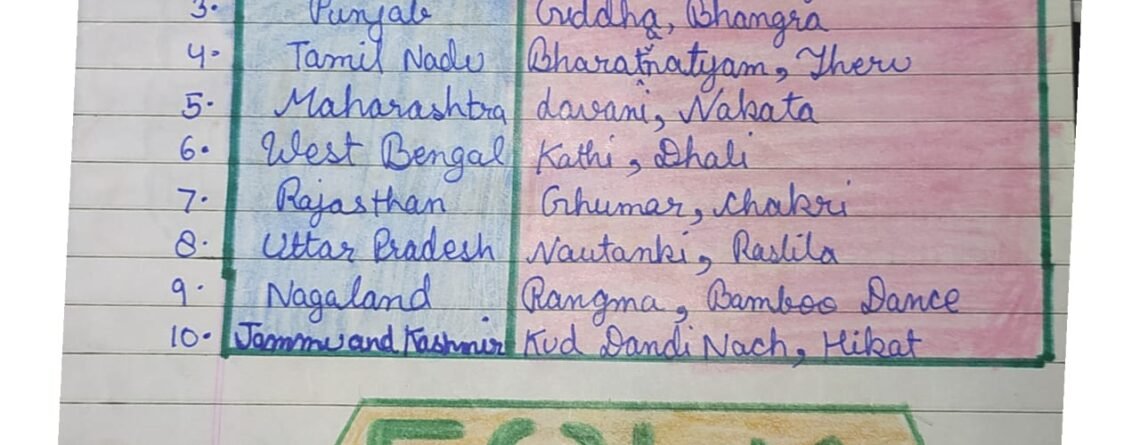 3. Punjab Giddha, Bhangra
4. Tamil Nadu Bharatnatyam, Theru
5. Maharashtra davani, Nakata
6. West Bengal Kathi, Dhali
7. Rajasthan Ghumar, Chakri
8. Uttar Pradesh Nautanki, Raslila
9. Nagaland Rangma, Bamboo Dance
10. Jammu and Kashmir Kud Dandi Nach, Hikat